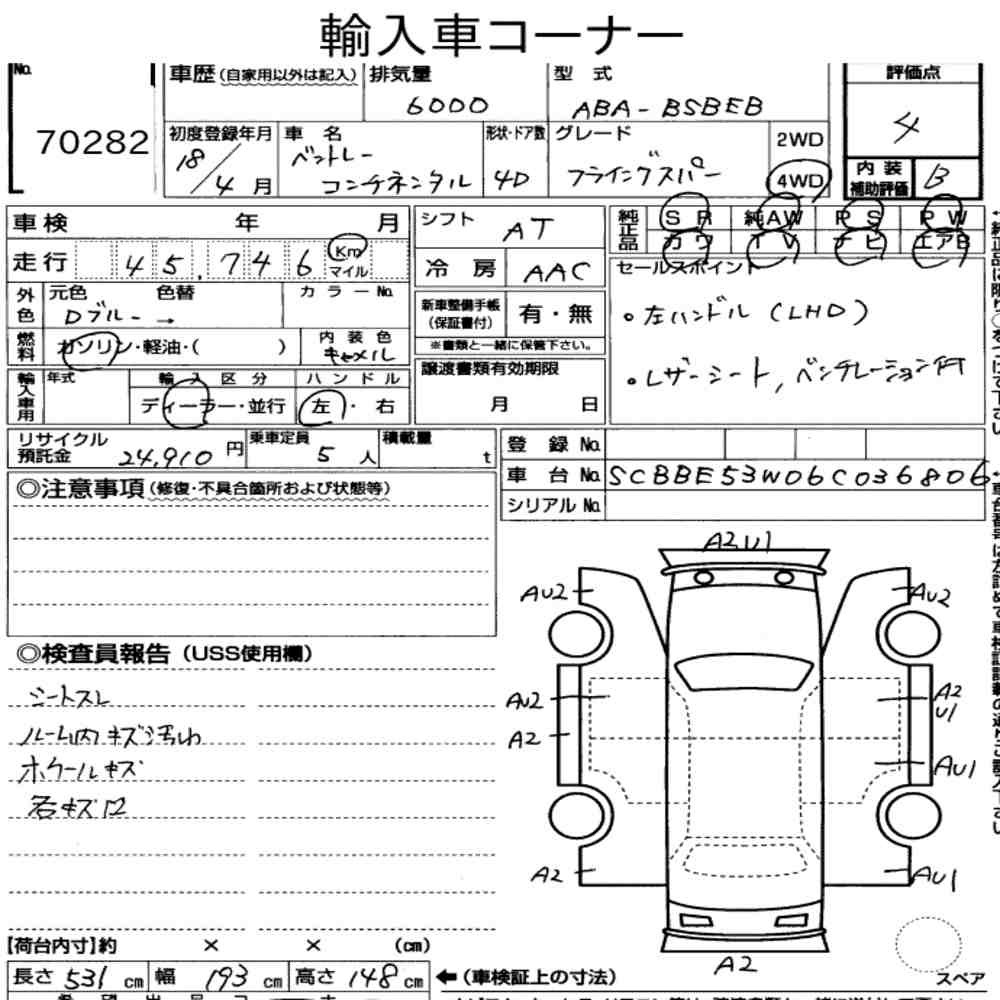 輸入車コーナー
No. 70282
車歴(自家用以外は記入)
排気量 6000
型式 ABA-BSBEB
評価点 4
初度登録年月 18/4月
車名 ベントレー コンチネンタル
形状・ドア数 4D
グレード フライングスパー
2WD
4WD
内装補助評価 B
車検 年 月
シフト AT
純正品 SR 純AW PS PW
カワ TV ナビ エアB
走行 45,746 Km マイル
冷房 AAC
セールスポイント
外色 元色 色替 カラーNo.
Dブルー →
新車整備手帳(保証書付) 有・無
※書類と一緒に保管下さい。
・左ハンドル (LHD)
燃料 ガソリン・軽油・( )
内装色 キャメル
・レザーシート, ベンチレーション付
譲渡書類有効期限
月 日
輸入車用 年式 輸入区分 ハンドル
ディーラー・並行 左・右
リサイクル預託金 24,910円
乗車定員 5人
積載量 t
登録No.
車台No. SCBBE53W06C036806
シリアルNo.
◎注意事項(修復・不具合箇所および状態等)
A2U1
AU2 AU2
◎検査員報告(USS使用欄)
シートスレ
AU2 A2 U1
ルーム内キズ汚れ
A2 AU1
ホイールキズ
各キズ凹
A2 AU1
【荷台内寸】約 × × (cm)
長さ531cm 幅193cm 高さ148cm
←(車検証上の寸法)
A2
スペア